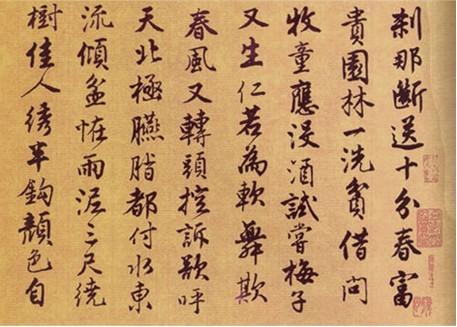 刹那斷送十分春富
貴園林一洗貧借問
牧童應沒酒試嘗梅子
又生仁若為軟舞欺
春風又轉頭控訴欲呼
天北極臙脂都付水東
流傾盆怪雨泥三尺繞
樹佳人綉半鈎顏色自